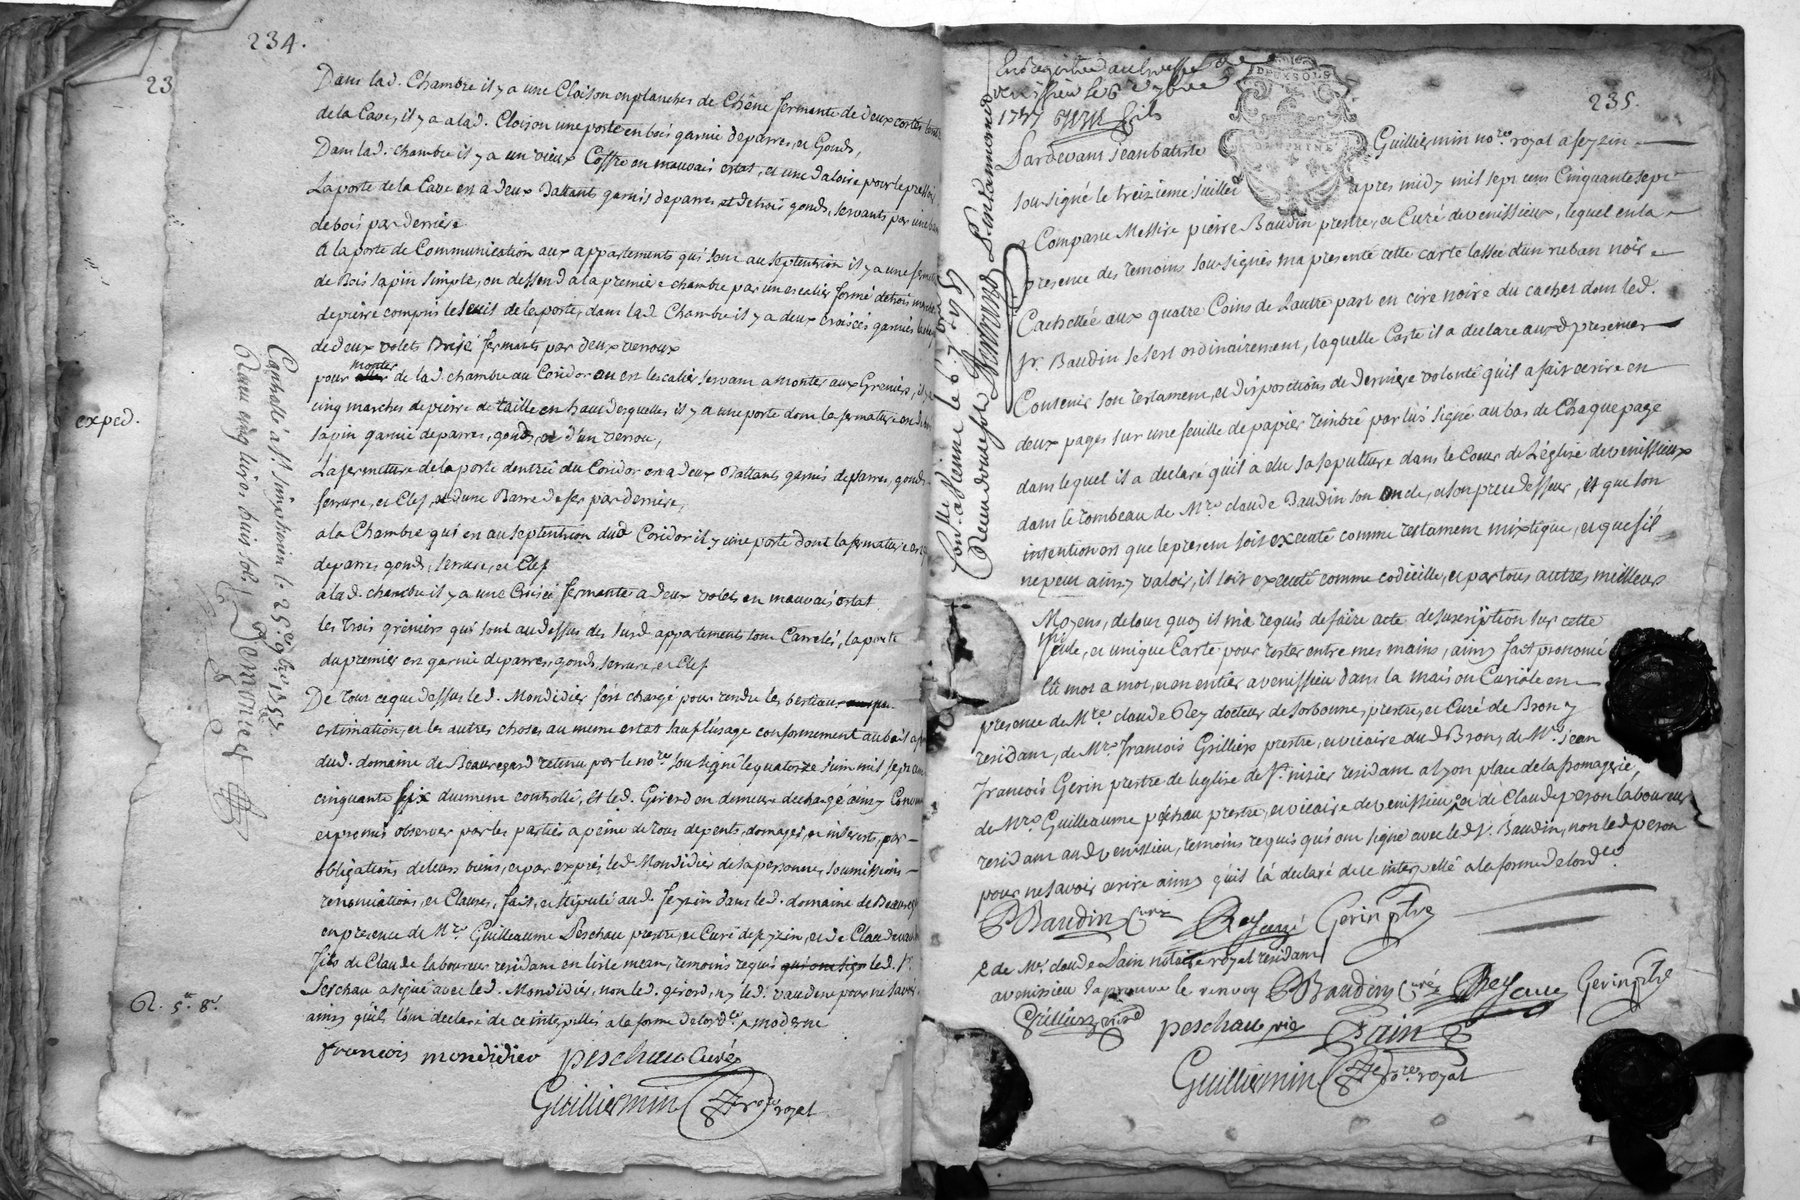 234.
23
Dans lad. Chambre il y a une Cloison en planches de Chêne fermante de deux costés
de la Cave, il y a a lad. Cloison une porte en bois garnie de parres, et Gonds,
Dans lad. chambre il y a un vieux Coffre en mauvais estat, et une daloire pour le pressoir
La porte de la Cave est a deux battant garnis de parres et de trois gonds, servants par une
de bois par derriere
A la porte de Communication aux appartements qui sont au septentrion il y a une
de Bois sapin simple, on dessend a la premiere chambre par un escalier formé de trois
de pierre compris le seuil de la porte, dans lad. Chambre il y a deux croisées garnies
de deux volets Brisé fermants par deux verroux
pour monter de lad. chambre au Coridor ou est l'escalier servant a monter aux Greniers, il y a
cinq marches de pierre de taille en haut desquelles il y a une porte dont la fermature est de
sapin garnie de parres, gonds, et d'un verrou,
La fermeture de la porte d'entreé du Coridor est a deux battants garnis de parres, gonds
serrure, et Clef, et d'une Barre de fer par derriere,
a la Chambre qui est au septentrion dud Coridor il y a une porte dont la fermature est
de parres gonds, serrure, et Clef
a lad. chambre il y a une Croisée fermante a deux volets en mauvais estat
les trois greniers qui sont au dessus des susd appartements sont Carrelés, la porte
du premier est garnie de parres, gonds serrure, et Clef
De tout ce que dessus led. Mondidier s'est chargé pour rendre les bestiaux
estimation, et les autres choses au meme estat sauf l'usage conformement au bail a ferme
dud. domaine de Beauregard retenu par le nore. sousigné le quatorze juin mil sept cent
cinquante six dument controllé, Et led. Girerd en demeure dechargé ainsy Convenu
et promis observer par les parties a peine de tous depents, domages, et interests, par
obligations de leurs biens, et par exprés led. Mondidier de sa personne, soumissions
renonciations, et Clauses, fait, et stipulé aud. feyzin dans led. domaine de Beauregard
en presence de Mre. Guilleaume Peschau prestre, et Curé de feyzin, et de Claude
fils de Claude laboureur residant en l'isle mean, temoins requis qui ont signé led. Sr.
Peschau a signé avec led. Mondidier, non led. girerd, ny led. vaudene pour ne savoir
ainsy qu'ils l'ont declaré de ce interpellés a la forme de l'ordce. moderne
françois mondidier peschau Curé
Guilliermin nore royal
exped.
R. 5s. 8d.
Controllé a St. simphorien le 25e. 9bre 1757.
Recu cinq livres huit sols
235.
Enregistré au greffe de
venissieu le 6e 7bre
1757
DEUX SOLS
DAUPHINE
Pardevant Jean batiste Guilliermin nore. royal a feyzin
sousigné le treizieme juillet apres midy mil sept cens Cinquante sept
a Comparu Messire pierre Baudin prestre, et Curé de venissieux, lequel en la
presence des temoins sousignés m'a presenté cette carte lassée d'un ruban noir
Cachettée aux quatre Coins de l'autre part en cire noire du cachet dont led.
sr. Baudin se sert ordinairement, laquelle Carte il a declaré aux d presences
Contenir son testament, et dispositions de derniere volonté qu'il a fait ecrire en
deux pages sur une feuille de papier timbré par lui signé au bas de Chaque page
dans lequel il a declaré qu'il a elu sa sepulture dans le Coeur de L'église de venissieux
dans le tombeau de Mre. claude Baudin son Oncle, et son predesseur, Et que son
intention est que le present soit executé comme testament mixtique, et que s'il
ne peut ainsy valoir, il soit executé comme codicille, et par tous autres meilleurs
Moyens, de tout quoy il m'a requis de faire acte de suscription sur cette
seule, et unique Carte pour rester entre mes mains, ainsy fait prononcé
lû mot a mot, et en entier a venissieu dans la maison Curiale en
presence de Mre. claude Rey docteur de sorbonne, prestre, et Curé de Bron y
residant, de Mre. françois Grillier prestre, et vicaire dud Bron, de Mre. jean
françois Gerin prestre de l'eglise de St. nisier residant a lyon place de la fromagerie,
de Mre. Guilleaume peschau prestre, et vicaire de venissieu, et de Claude peron laboureur
residant aud venissieu, temoins requis qui ont signé avec led Sr. Baudin, non led peron
pour ne savoir ecrire ainsy qu'il l'a declaré de ce interpellé a la forme de l'ordce.
P Baudin Curé Rey curé Gerin ptre
et de Mre. claude Pain notaire royal residant
a venissieu J'aprouve le renvoy P Baudin Curé Rey curé Gerin ptre
Grillier vicre peschau vic Pain
Guilliermin nore. royal